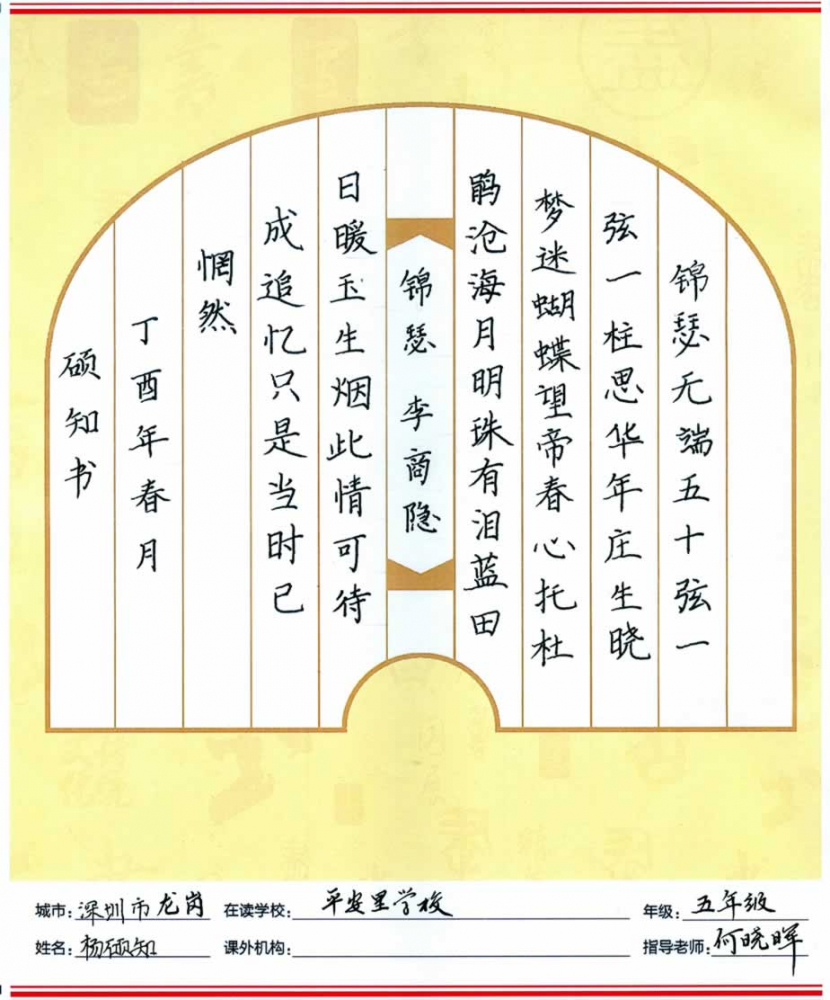 锦瑟无端五十弦一
弦一柱思华年庄生晓
梦迷蝴蝶望帝春心托杜
鹃沧海月明珠有泪蓝田
锦瑟 李商隐
日暖玉生烟此情可待
成追忆只是当时已
惘然
丁酉年春月
硕知书
城市：深圳市龙岗 在读学校：平安里学校 年级：五年级
姓名：杨硕知 课外机构： 指导老师：何晓晖